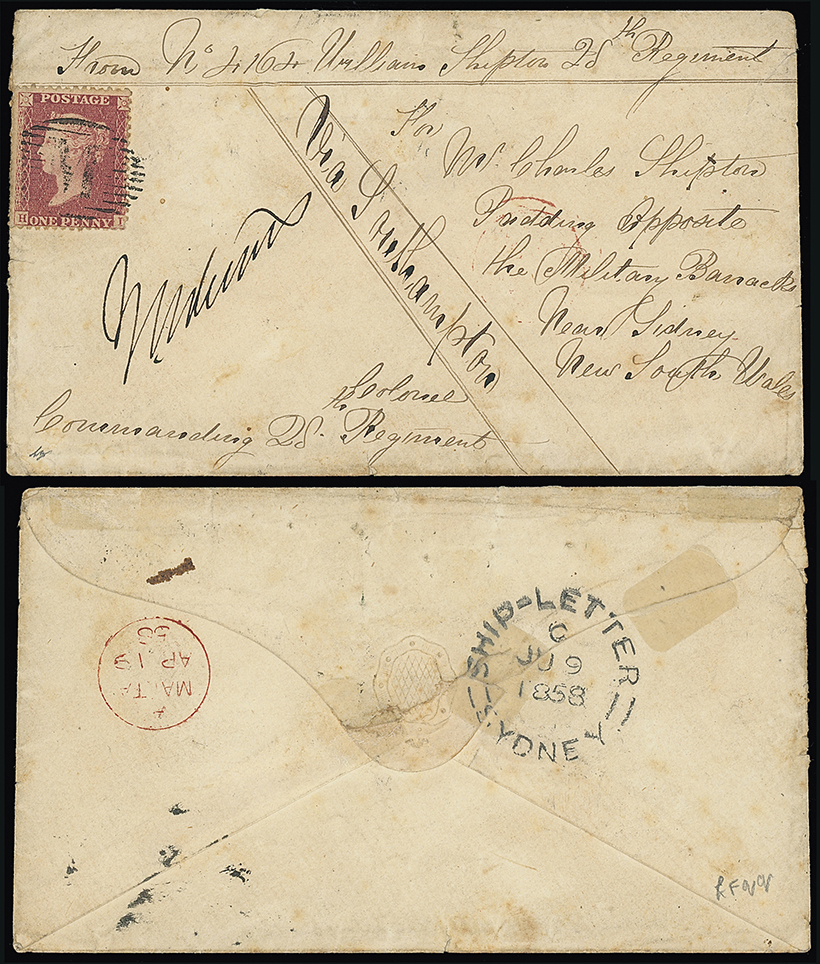 From No 4164 William Shipton 28th Regiment
POSTAGE
M
H ONE PENNY I
Via Southampton
For
Mr Charles Shipton
Pudding Opposite
the Military Barracks
Near Sidney
New South Wales
Colonel
Commanding 28th Regiment
SHIP-LETTER
C
JU 9
1858
SYDNEY
A
MALTA
AP 19
58